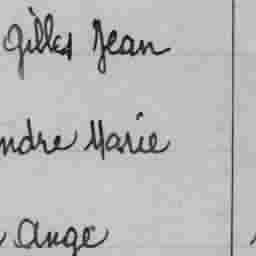 Gilles Jean
ndre Marie
Ange